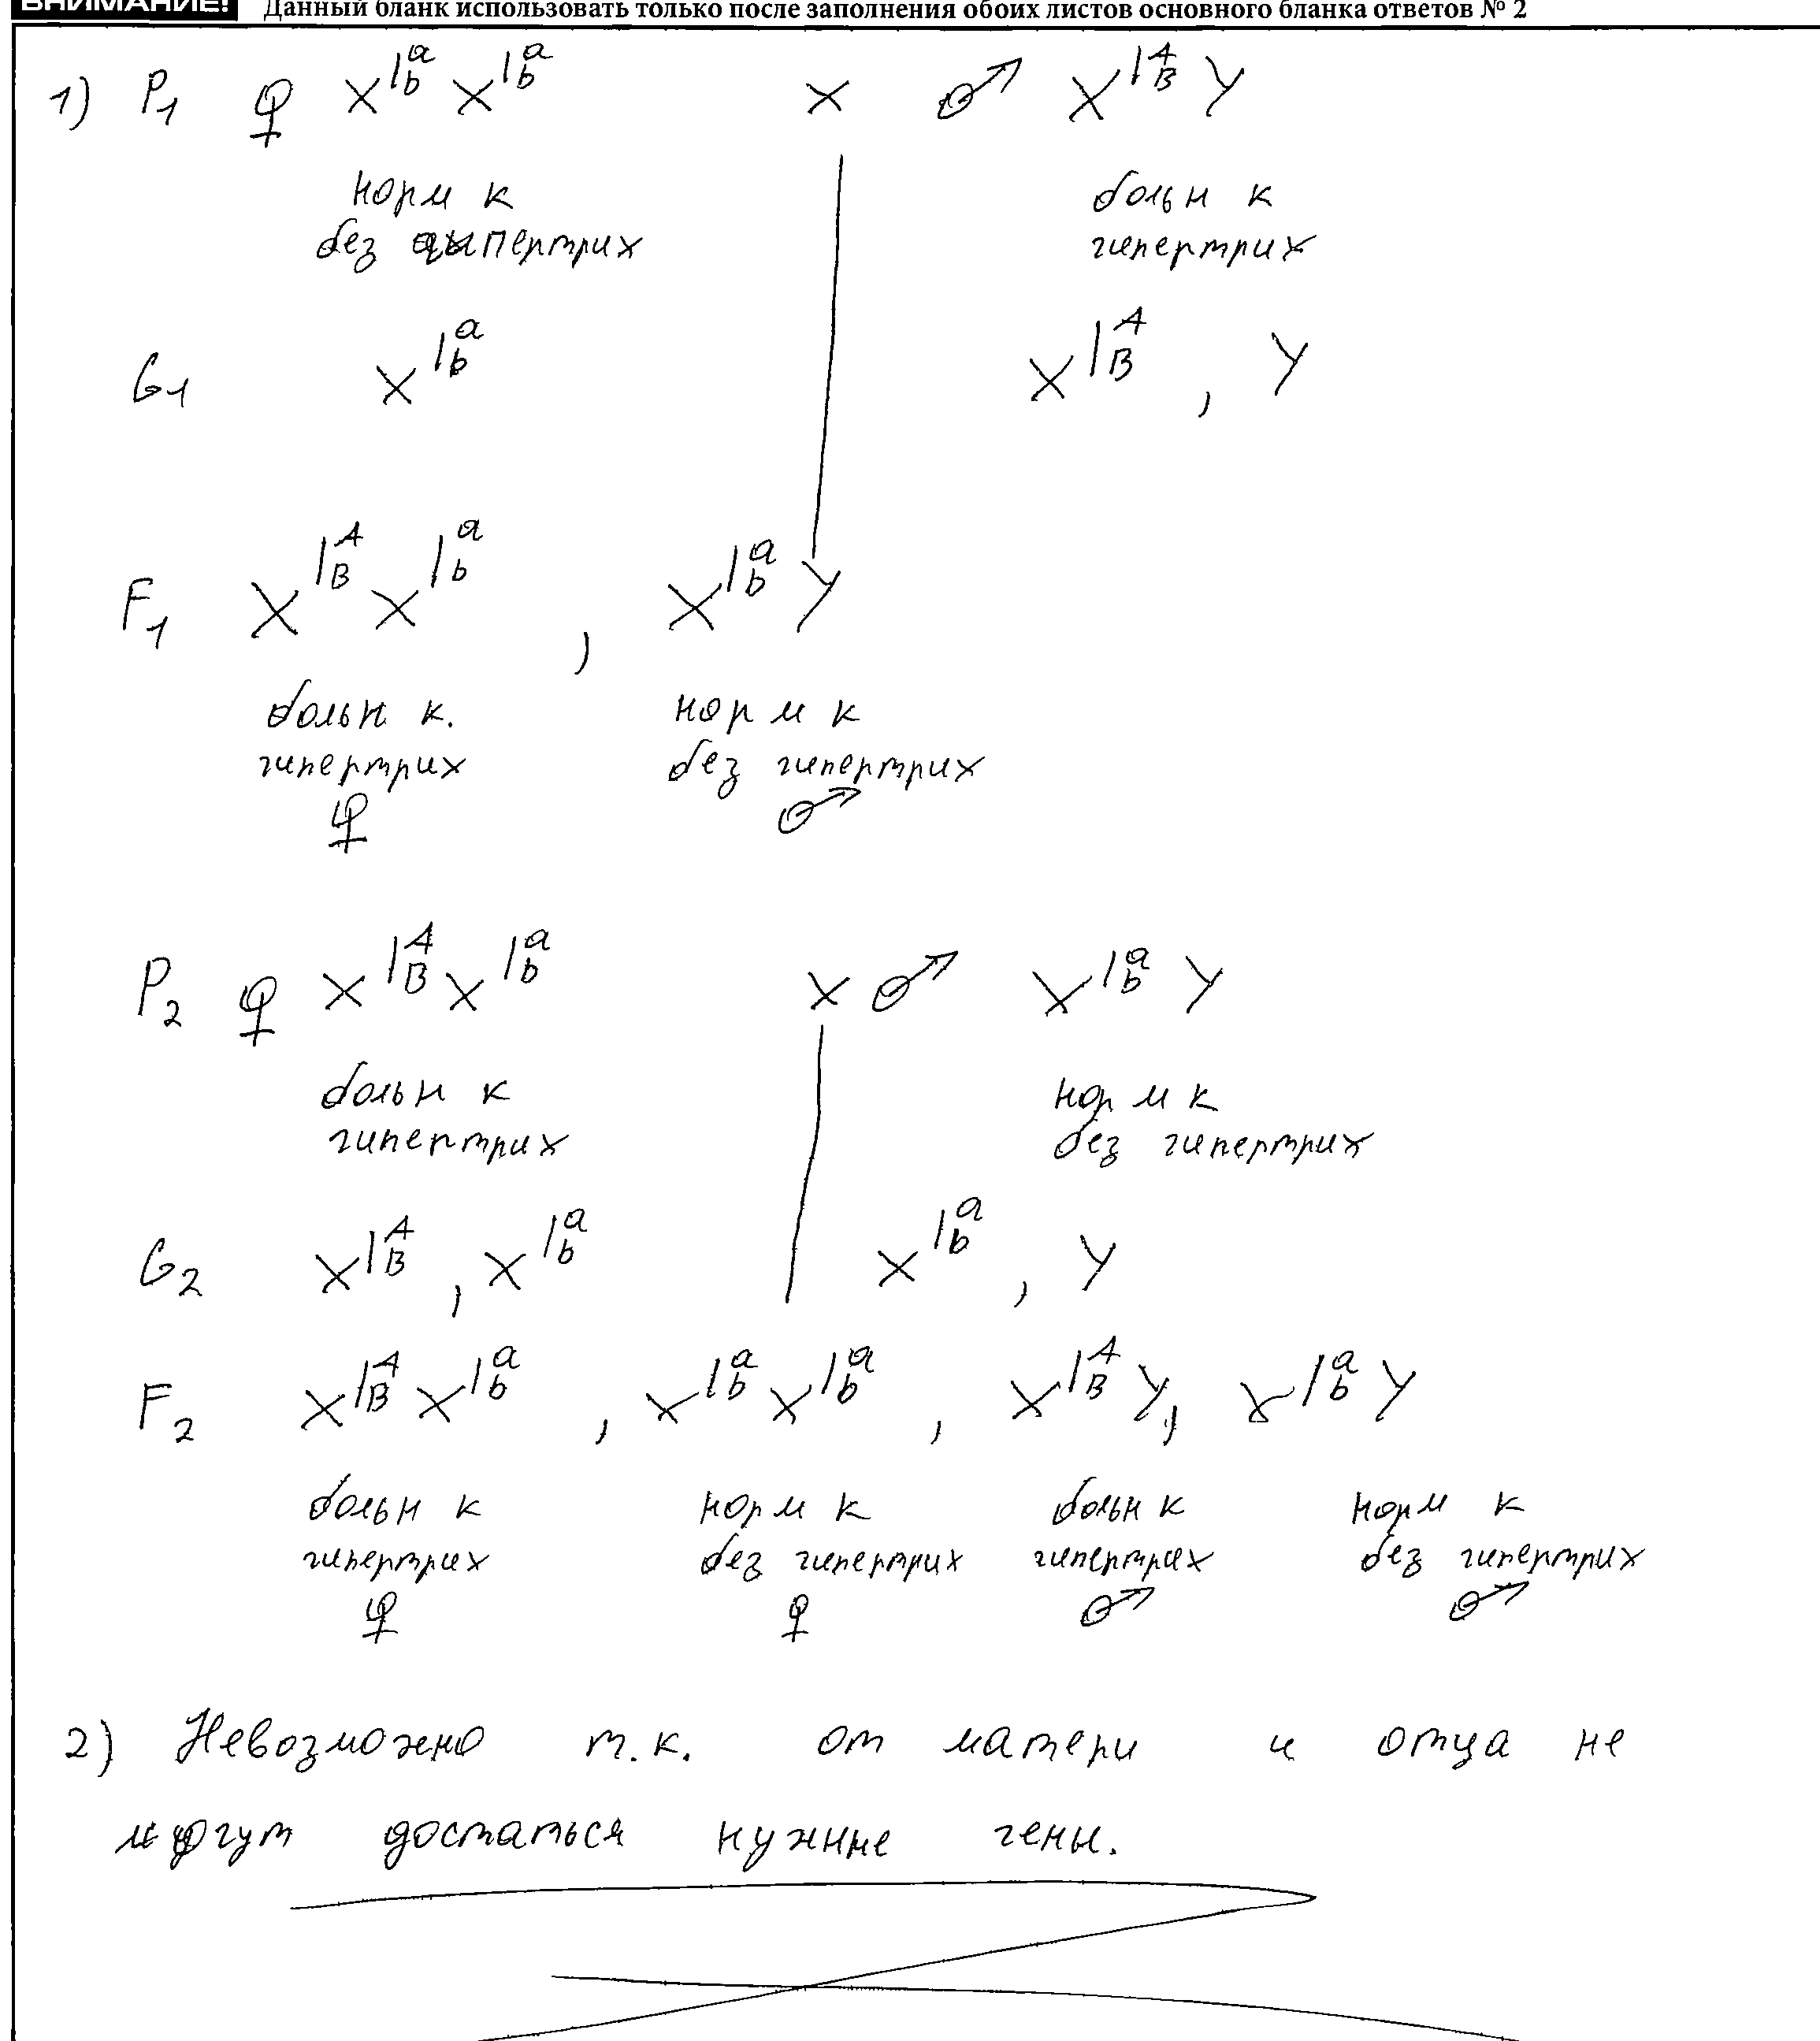 ВНИМАНИЕ! Данный бланк использовать только после заполнения обоих листов основного бланка ответов № 2
1) P₁ ♀ X^|ᵃ_b X^|ᵃ_b × ♂ X^|ᴬ_B Y
норм к больн к
без гипертрих гипертрих
G₁ X^|ᵃ_b X^|ᴬ_B , Y
F₁ X^|ᴬ_B X^|ᵃ_b , X^|ᵃ_b Y
больн к. норм к
гипертрих без гипертрих
♀ ♂
P₂ ♀ X^|ᴬ_B X^|ᵃ_b × ♂ X^|ᵃ_b Y
больн к норм к
гипертрих без гипертрих
G₂ X^|ᴬ_B , X^|ᵃ_b X^|ᵃ_b , Y
F₂ X^|ᴬ_B X^|ᵃ_b , X^|ᵃ_b X^|ᵃ_b , X^|ᴬ_B Y, X^|ᵃ_b Y
больн к норм к больн к норм к
гипертрих без гипертрих гипертрих без гипертрих
♀ ♀ ♂ ♂
2) Невозможно т.к. от матери и отца не
могут достаться нужные гены.